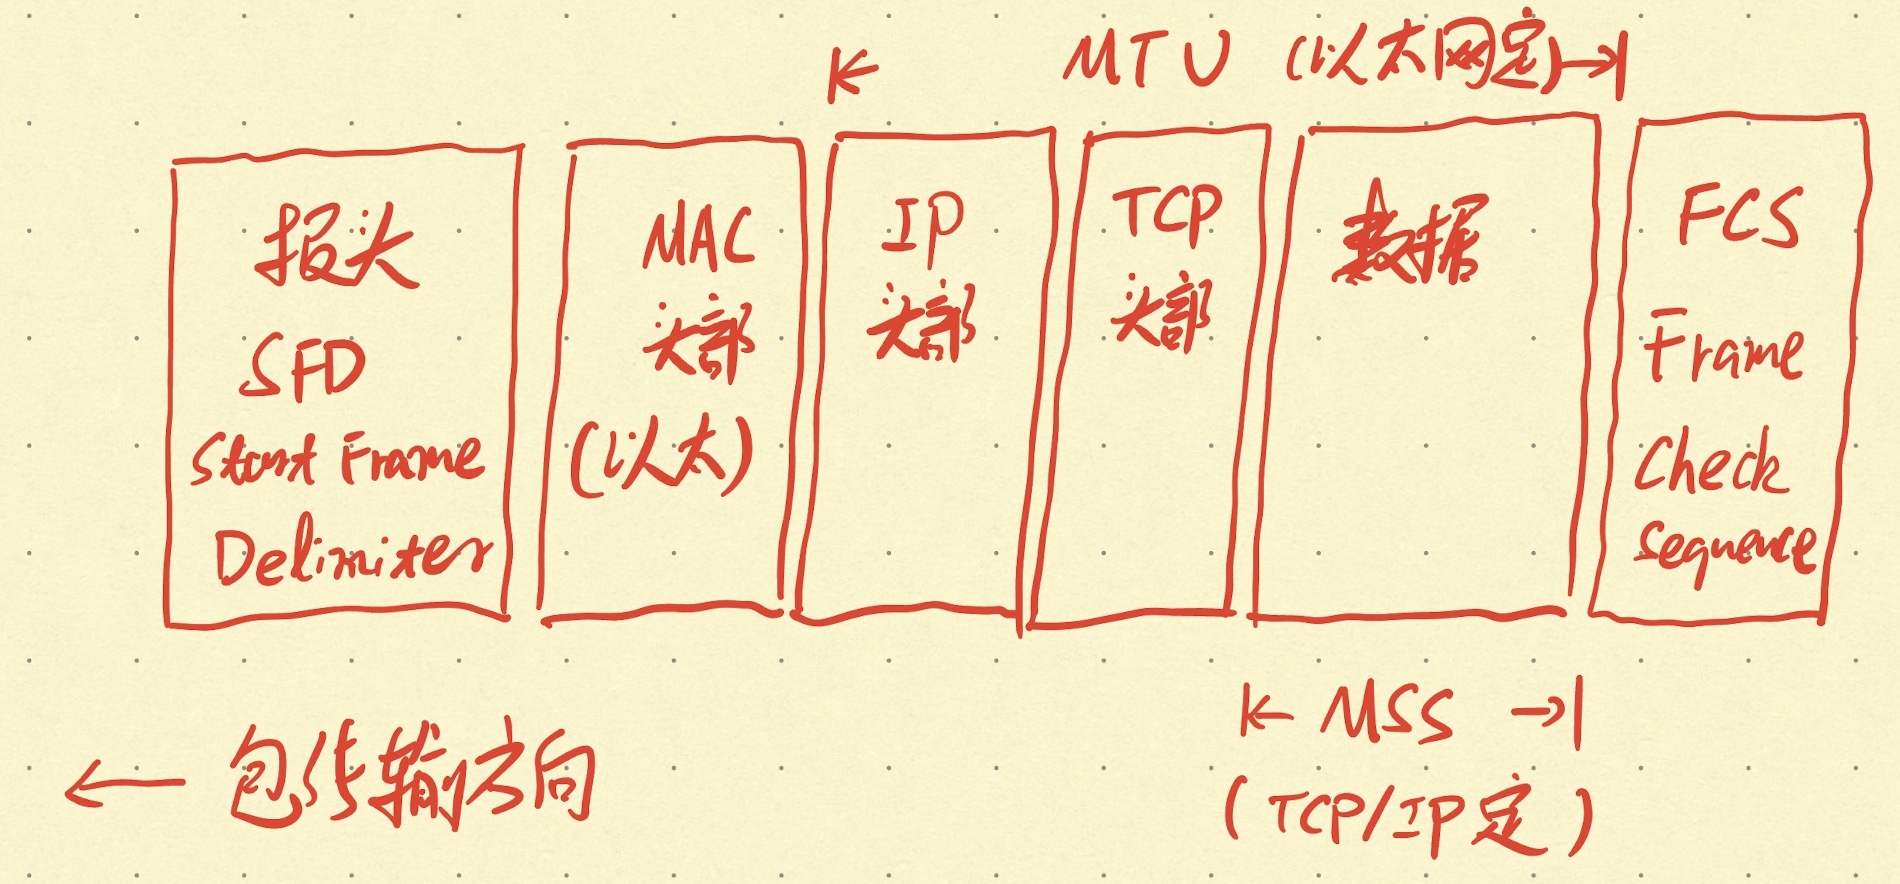 MTU (以太网定)
报头
SFD
Start Frame
Delimiter
MAC
头部
(以太)
IP
头部
TCP
头部
数据
FCS
Frame
Check
Sequence
MSS
(TCP/IP定)
包传输方向